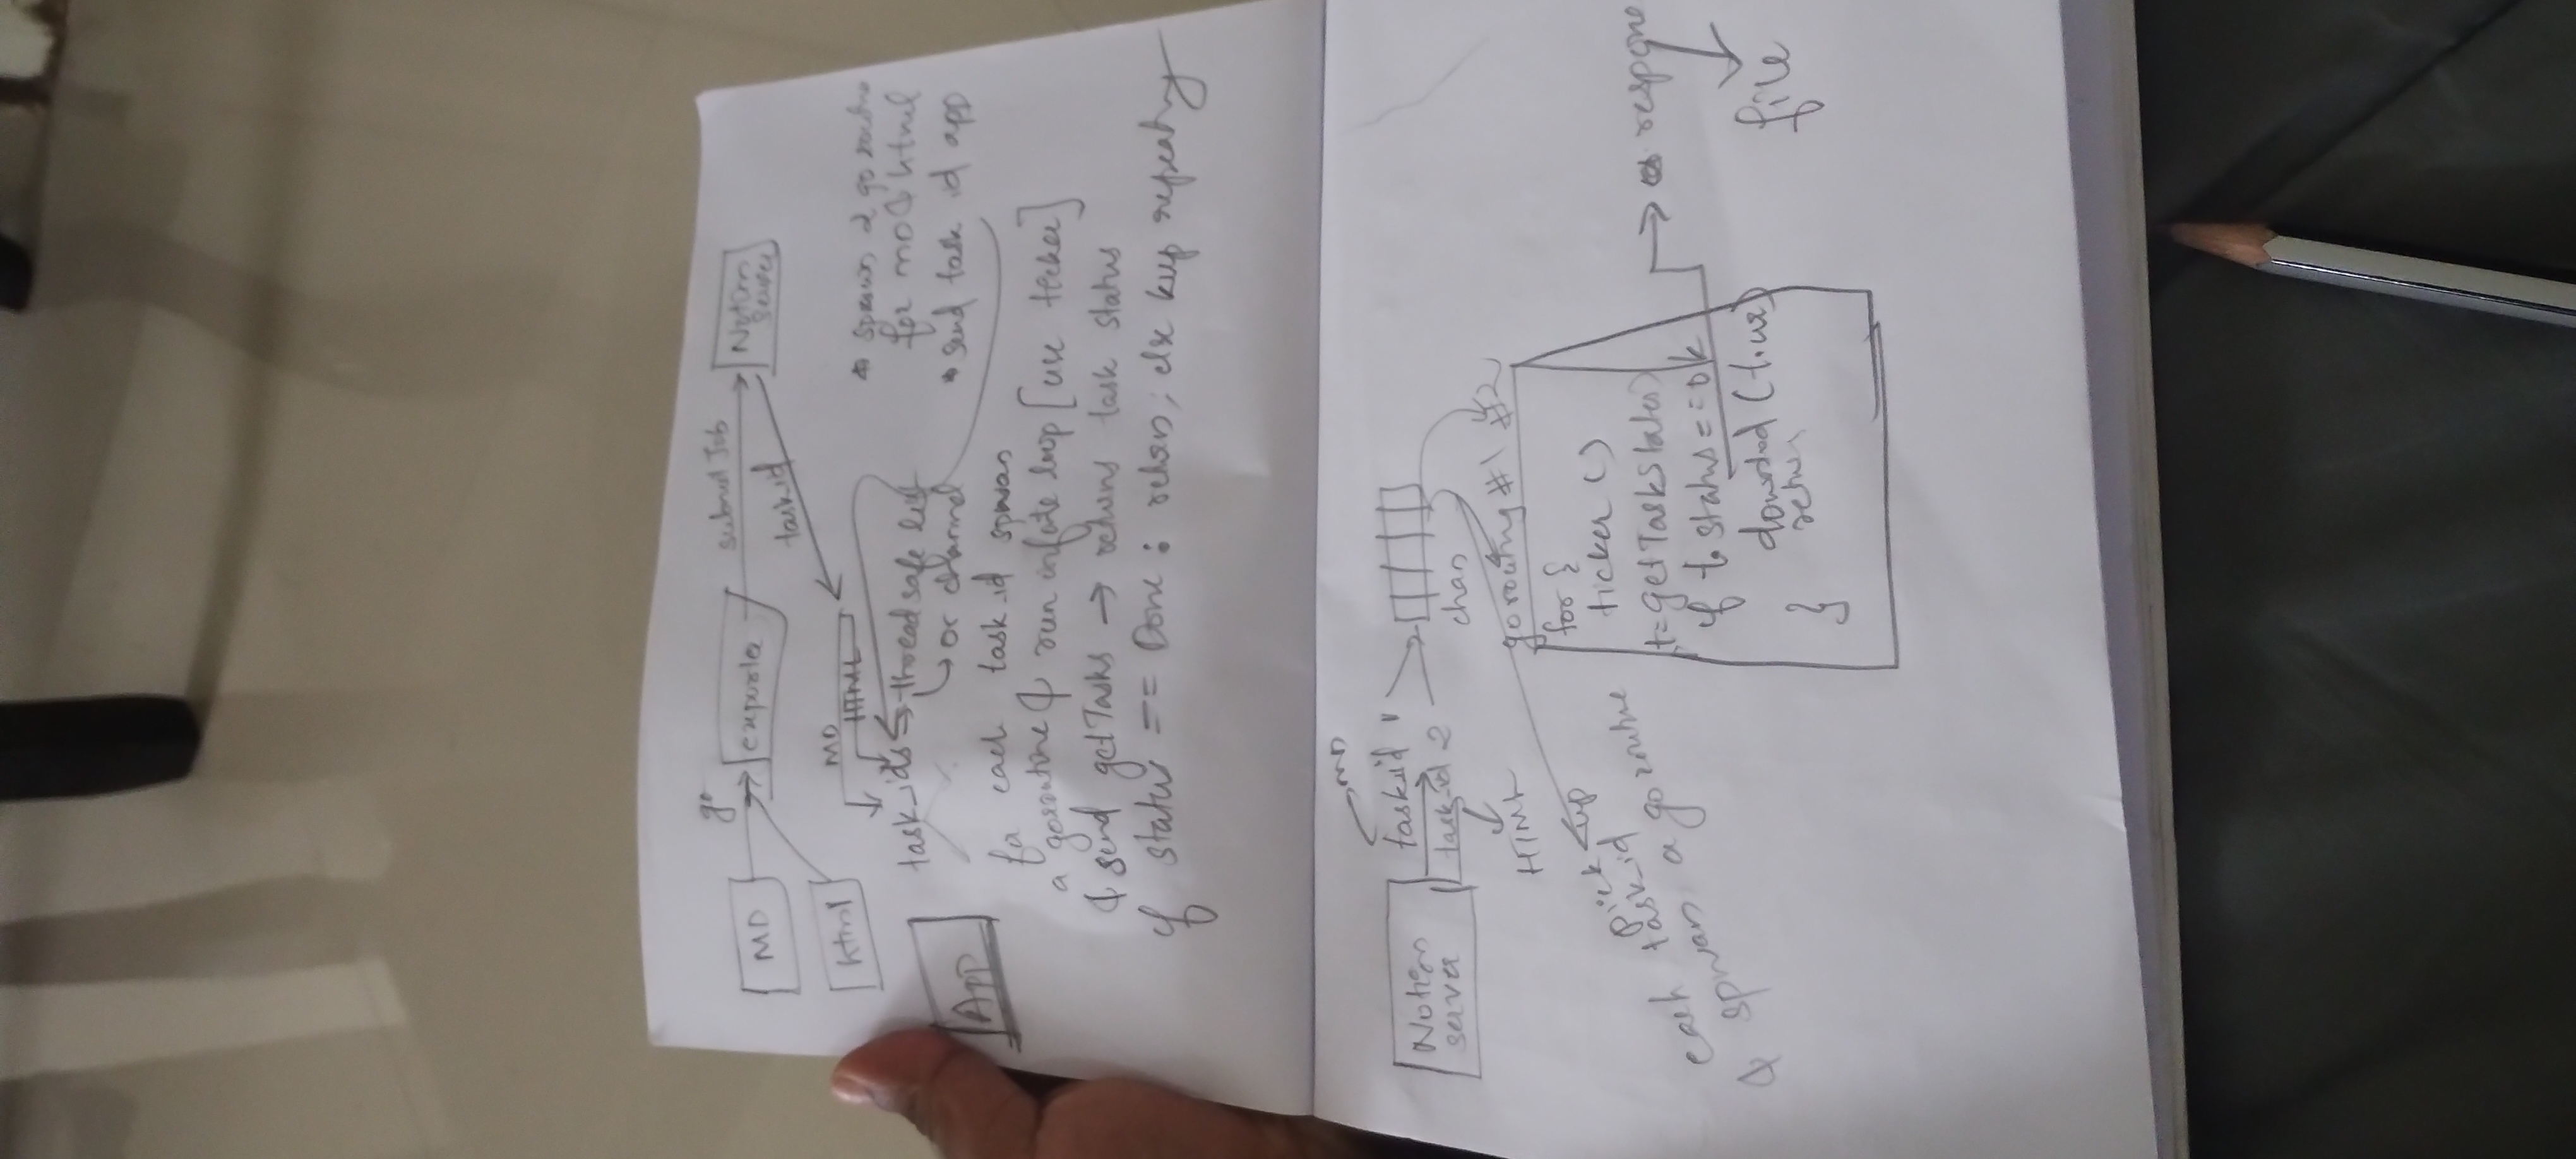 go
MD
exporter
submit Job
Notion
server
html
task id
MD
HTML
task_ids
thread safe list
or channel
* spawn 2 go routine
for MD & html
* send task id app
App
for each task_id spwan
a goroutine & run infinte loop [use ticker]
& send getTasks → returns task status
if status == Done : return; else keep repeating
MD
Notion
server
task_id 1
task_id 2
HTML
chan
go routing #1 #2
pick up
each task_id
& spwan a go routine
for {
ticker ()
t=getTaskStatus)
if t. status == ok
download (t.url)
return
}
response
file